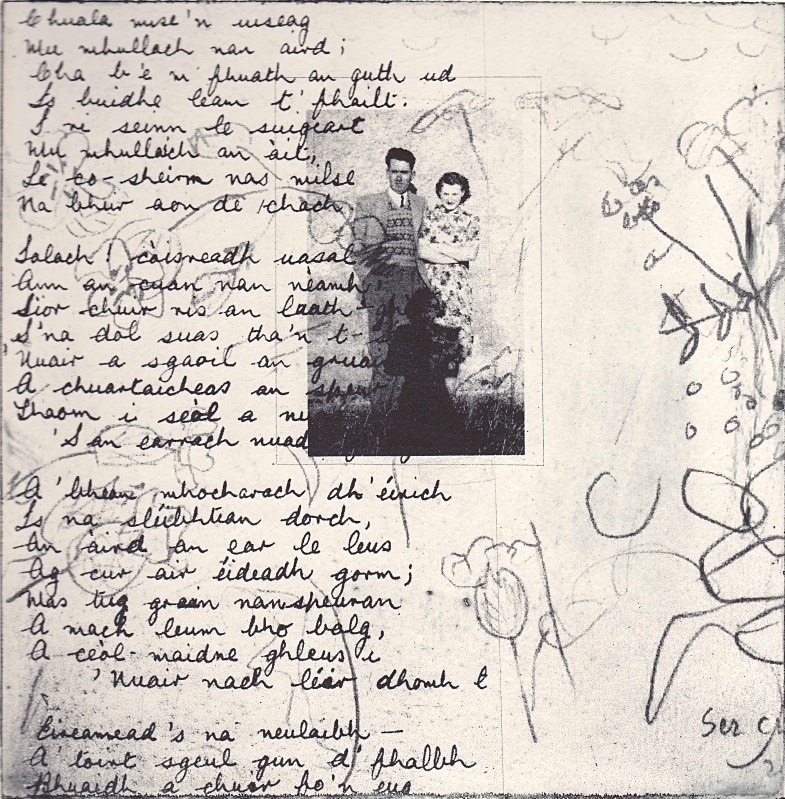 Chuala mise 'n uiseag
Mu mhullach nan àird;
Cha b'e m' fhuath an guth ud
Is buidhe leam t' fhàilt.
I ri seinn le suigeart
Mu mhullach an àit,
Le co-sheirm nas milse
Na bhur aon de chach
Solach! còisreadh uasal
Ann an cuan nan nèamh,
Sìor chuir ris an luath-
S'na dol suas tha'n t-
'Nuair a sgaoil an gruai
A chuartaicheas an speur
Thaom i seòl a
'S an earrach nuad
A' bhean mhocharach dh' éirich
Is na slèibhtean dorch,
An àird an ear le leus
Ag cur air éideadh gorm;
Mas tug grian nan speuran
A mach leum bho balg,
A ceòl-maidne ghleus i
'Nuair nach lèir dhomh t
Eireamead 's na neulaibh —
A' toirt sgeul gun d' fhalbh
Bhuaidh a chuir fo'n eug
Ser c